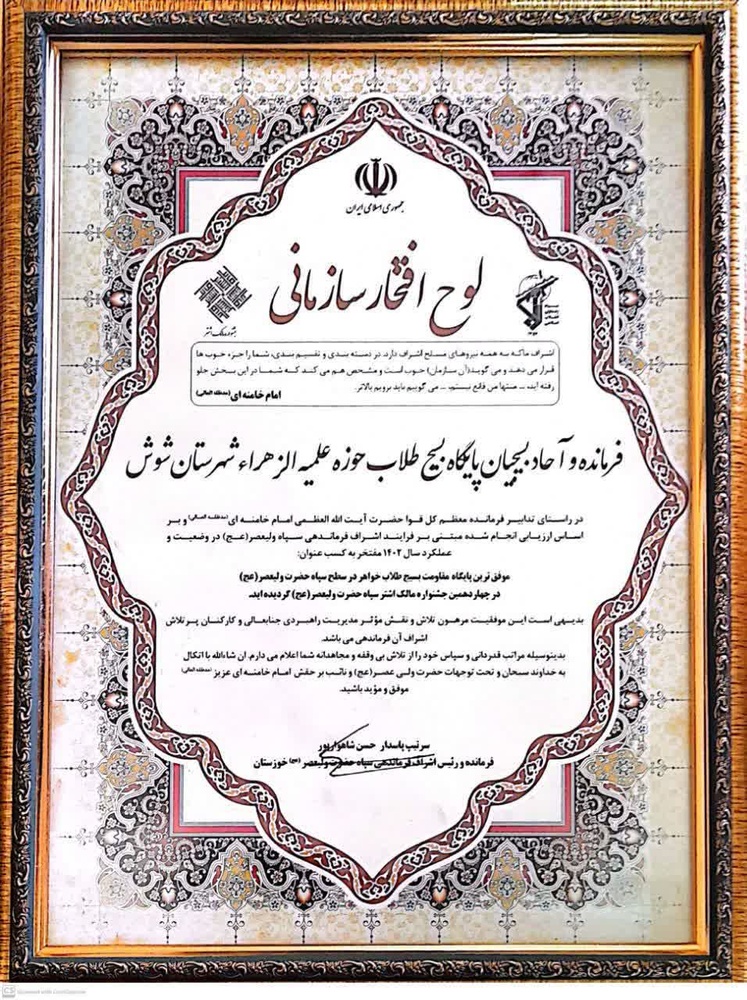 جمهوری اسلامی ایران
لوح افتخار سازمانی
جشنواره مالک اشتر
اشراف ماکه به همه نیروهای مسلح اشراف دارد، در دسته بندی و تقسیم بندی، شما را جزء خوب ها
قرار می دهد و می گوید(آن سازمان) خوب است و مشخص هم می کند که شما در این بخش جلو
رفته اید، ... منتها من قانع نیستم، ... می گوییم باید برویم بالاتر.
امام خامنه ای (مدظله العالی)
فرمانده و آحاد بسیجیان پایگاه بسیج طلاب حوزه علمیه الزهراء شهرستان شوش
در راستای تدابیر فرمانده معظم کل قوا حضرت آیت الله العظمی امام خامنه ای (مدظله العالی) و بر
اساس ارزیابی انجام شده مبتنی بر فرایند اشراف فرماندهی سپاه ولیعصر(عج) در وضعیت و
عملکرد سال ۱۴۰۲ مفتخر به کسب عنوان:
موفق ترین پایگاه مقاومت بسیج طلاب خواهر در سطح سپاه حضرت ولیعصر(عج)
در چهاردهمین جشنواره مالک اشتر سپاه حضرت ولیعصر(عج) گردیده اید.
بدیهی است این موفقیت مرهون تلاش و نقش مؤثر مدیریت راهبردی جنابعالی و کارکنان پر تلاش
اشراف آن فرماندهی می باشد.
بدینوسیله مراتب قدردانی و سپاس خود را از تلاش بی وقفه و مجاهدانه شما اعلام می دارم. ان شاءالله با اتکال
به خداوند سبحان و تحت توجهات حضرت ولی عصر(عج) و نائب بر حقش امام خامنه ای عزیز (مدظله العالی)
موفق و مؤید باشید.
سرتیپ پاسدار حسن شاهوارپور
فرمانده و رئیس اشراف فرماندهی سپاه حضرت ولیعصر (عج) خوزستان
CS Scanned with CamScanner